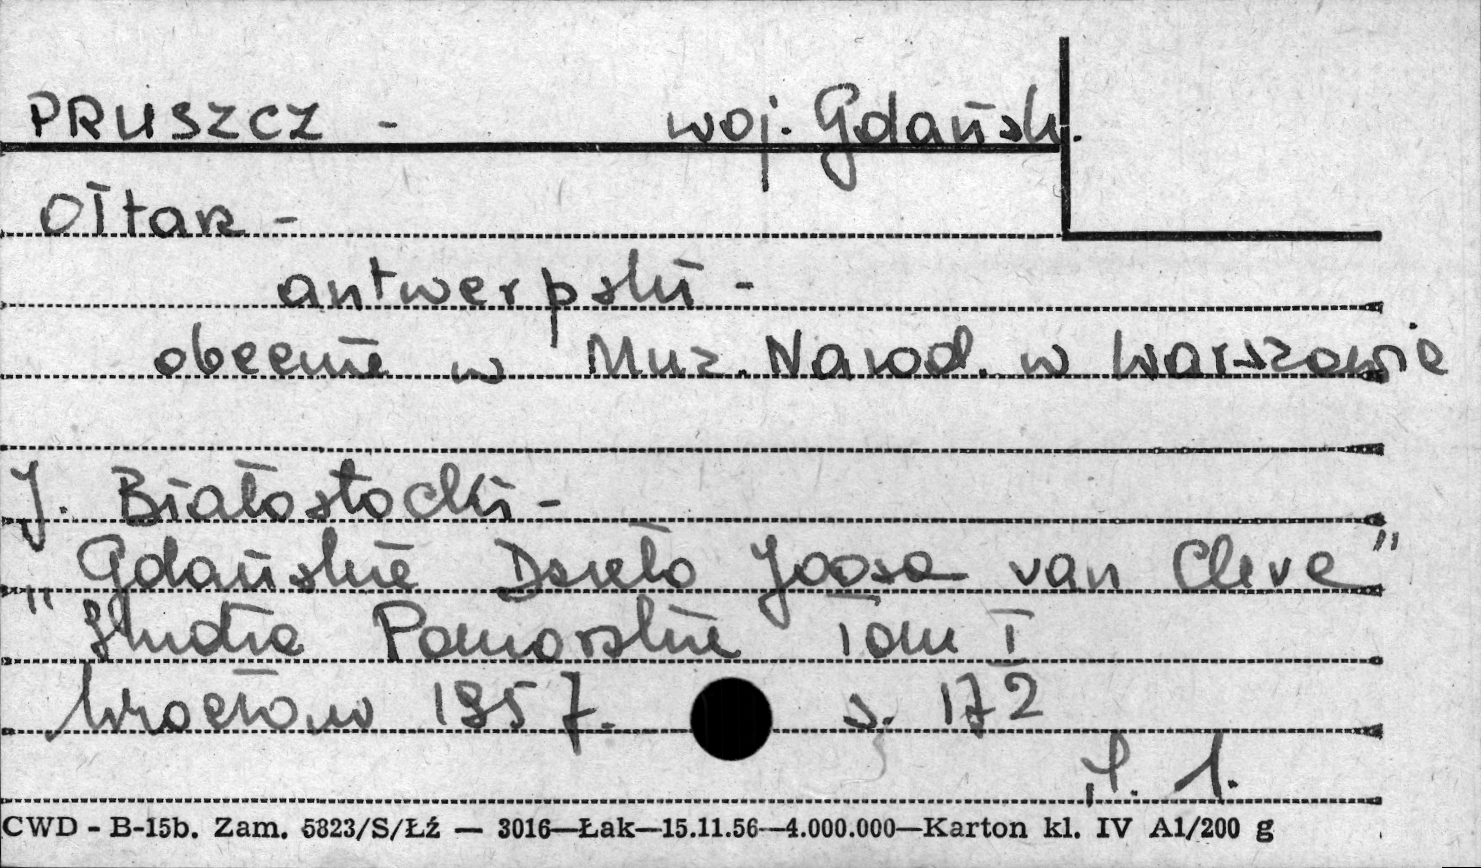 PRUSZCZ - woj. Gdańsk.
Ołtarz -
antwerpski -
obecnie w Muz. Narod. w Warszawie
J. Białostocki -
Gdańskie Dzieło Joosa van Cleve"
"Studia Pomorskie Tom I
Wrocław 1957. s. 172
CWD - B-15b. Zam. 5823/S/Łź — 3016—Łak—15.11.56—4.000.000—Karton kl. IV A1/200 g